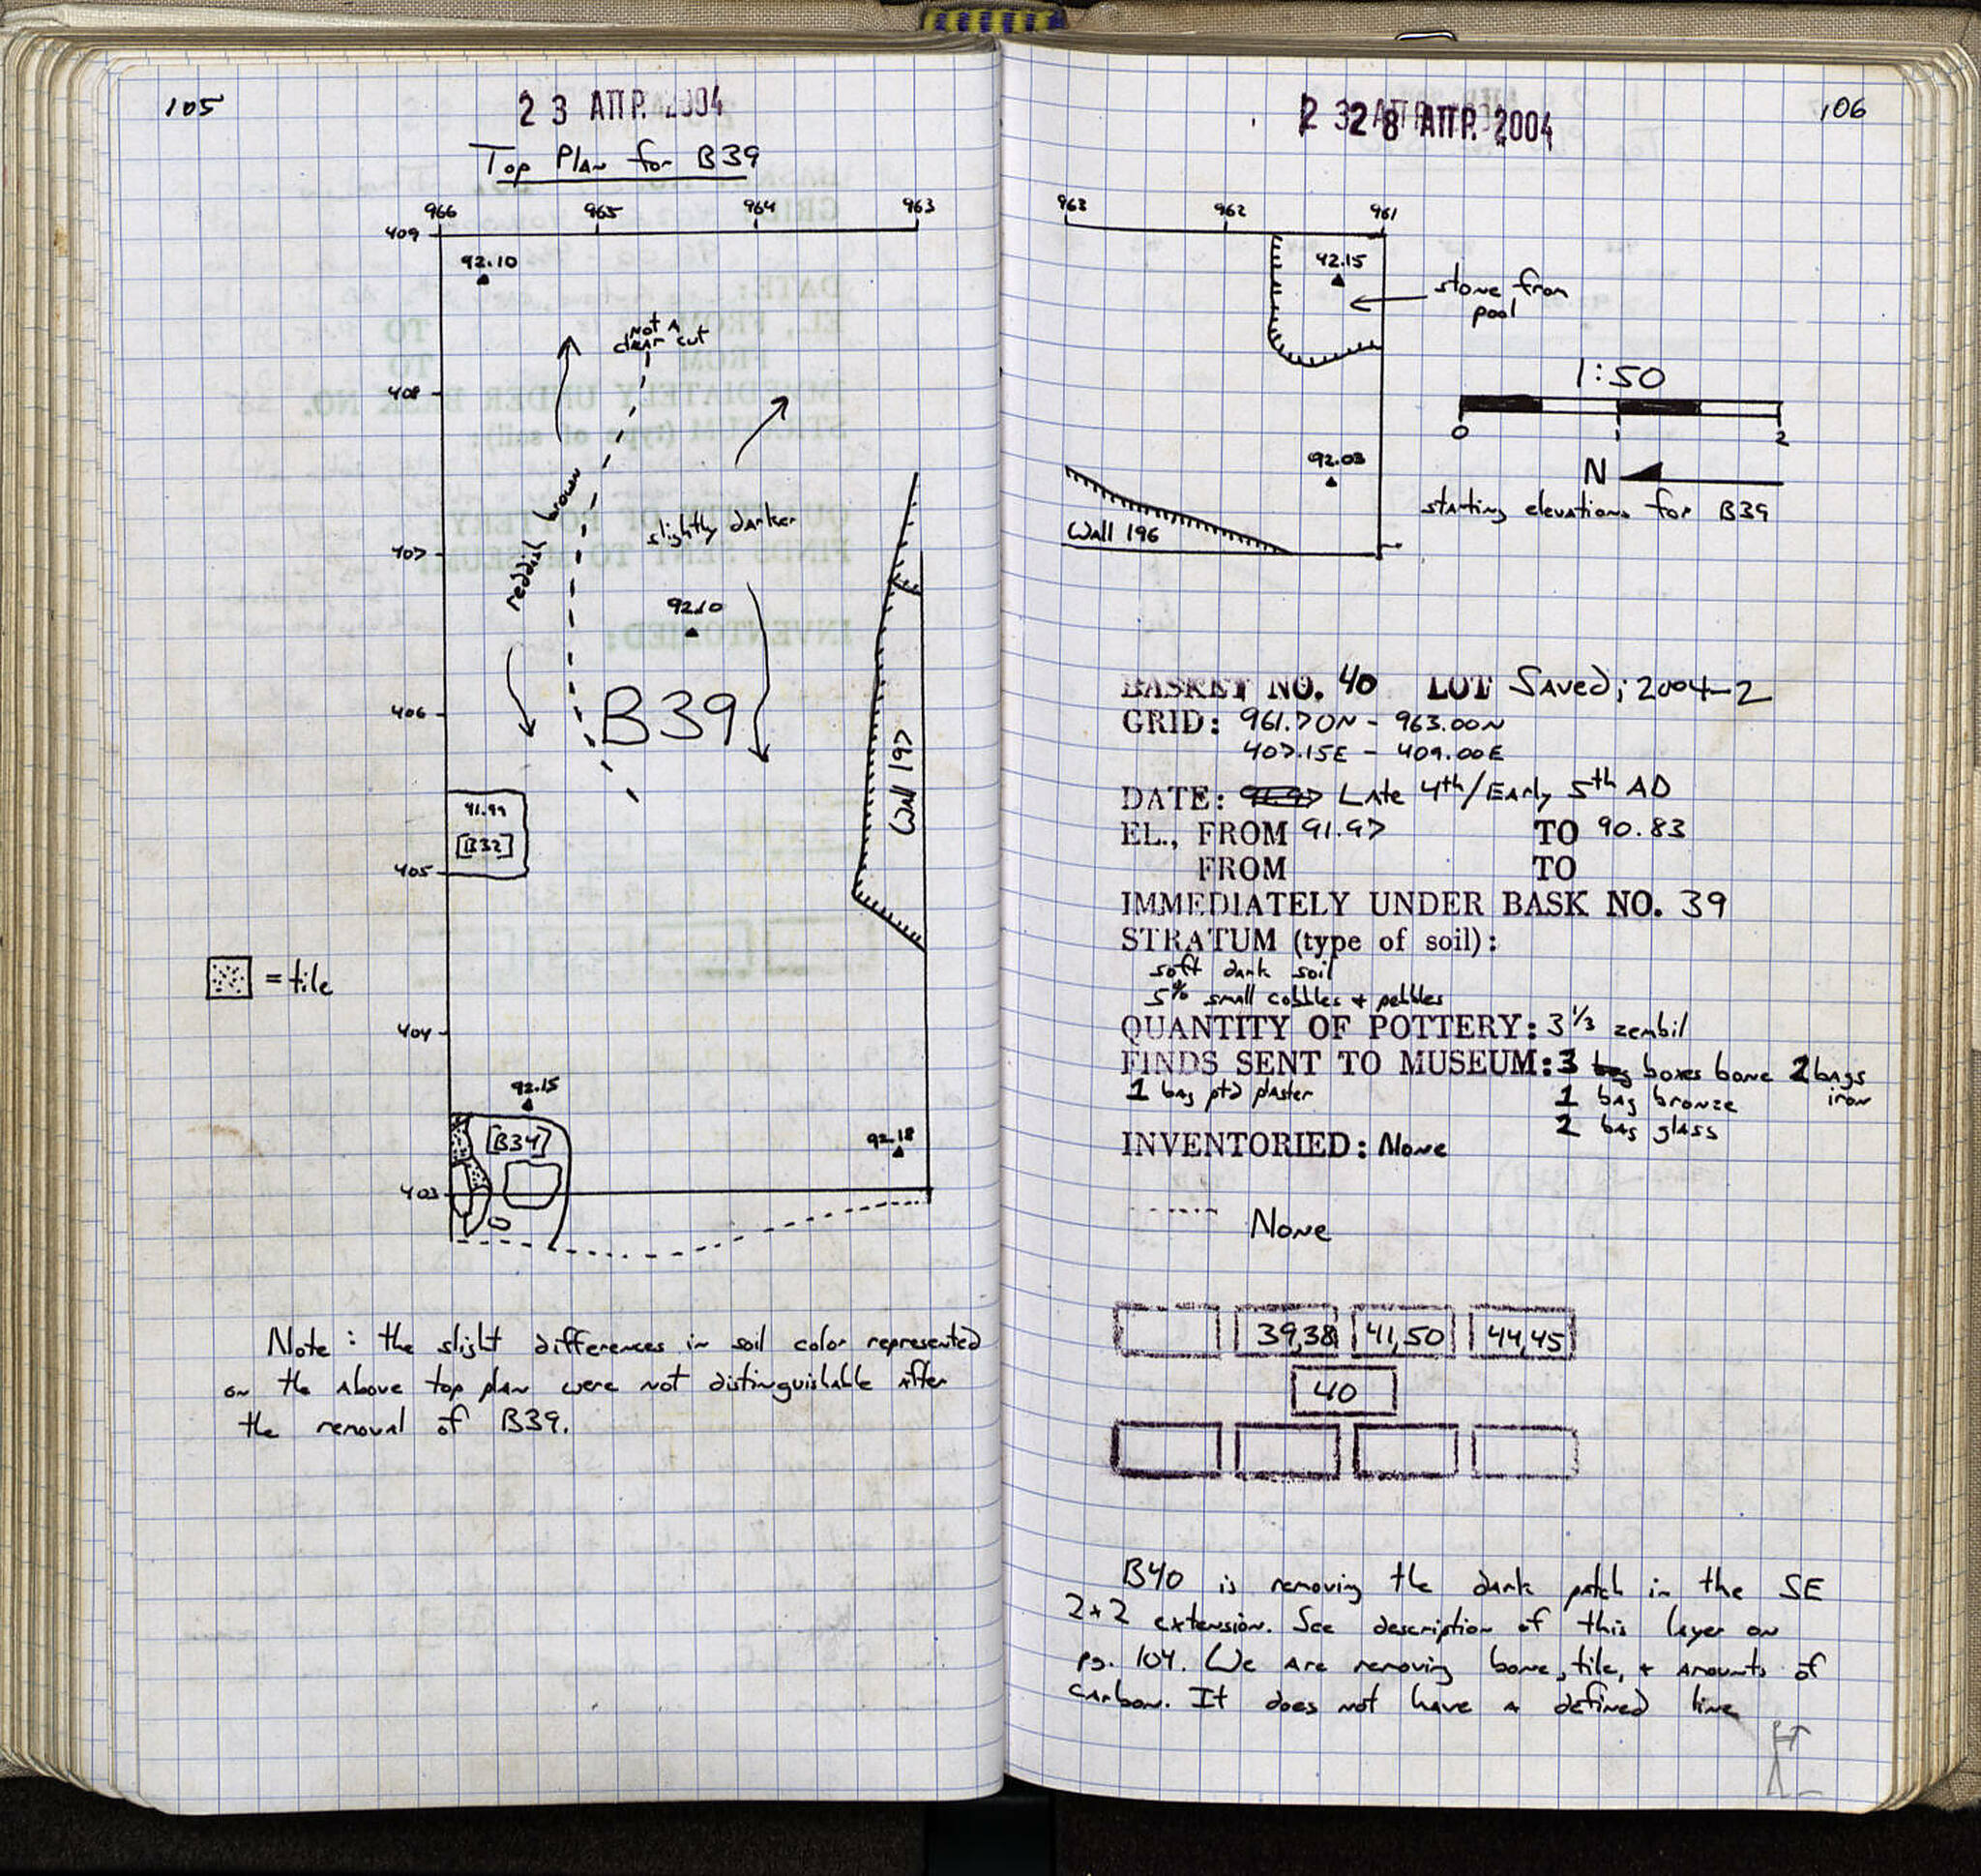 105
2 3 ΑΠΡ. 2004
Top Plan for B39
966 965 964 963
409
92.10
not a
clear cut
408
reddish brown
slightly darker
407
92.10
406
B39
Wall 197
91.99
[B32]
405
= tile
404
92.15
[B34]
92.18
403
Note : the slight differences in soil color represented
on the above top plan were not distinguishable after
the removal of B39.
106
2 8 ΑΠΡ. 2004
963 962 961
42.15
stone from
pool
1:50
0 1 2
N
92.03
starting elevations for B39
Wall 196
BASKET NO. 40 LOT Saved; 2004-2
GRID: 961.70N - 963.00N
407.15E - 409.00E
DATE: Late 4th/Early 5th AD
EL., FROM 91.97 TO 90.83
FROM TO
IMMEDIATELY UNDER BASK NO. 39
STRATUM (type of soil):
soft dark soil
5% small cobbles + pebbles
QUANTITY OF POTTERY: 3 1/3 zembil
FINDS SENT TO MUSEUM: 3 bag boxes bone 2 bags
iron
1 bag ptd plaster 1 bag bronze
2 bag glass
INVENTORIED: None
None
39,38 41,50 44,45
40
B40 is removing the dark patch in the SE
2x2 extension. See description of this layer on
pg. 104. We are removing bone, tile, + amounts of
carbon. It does not have a defined line